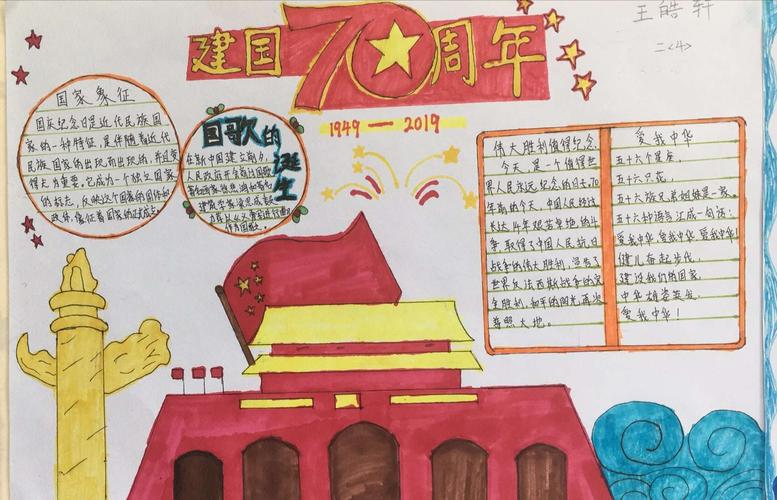 王皓轩
二<4>
建国70周年
1949 — 2019
国家象征
国庆纪念日是近代民族国
家的一种特征,是伴随着近代
民族国家的出现而出现的,并且变
得尤为重要。它成为一个独立国家
的标志,反映这个国家的国体和
政体,象征着国家的
国歌的诞生
在新中国建立前夕,
人民政府
著名画家徐悲鸿和著名
建筑学家梁思成都
义勇军进行曲
作为国歌。
伟大胜利值得纪念
今天,是一个值得世
界人民永远纪念的日子,70
年前的今天,中国人民经过
长达14年艰苦卓绝的斗
争,取得了中国人民抗日
战争的伟大胜利,宣告了
世界反法西斯战争的完
全胜利,和平的阳光再次
普照大地。
爱我中华
五十六个星座,
五十六只花,
五十六族兄弟姐妹是一家。
五十六种语言汇成一句话:
爱我中华 爱我中华 爱我中华!
健儿奋起步伐,
建设我们的国家,
中华雄姿英发,
爱我中华!